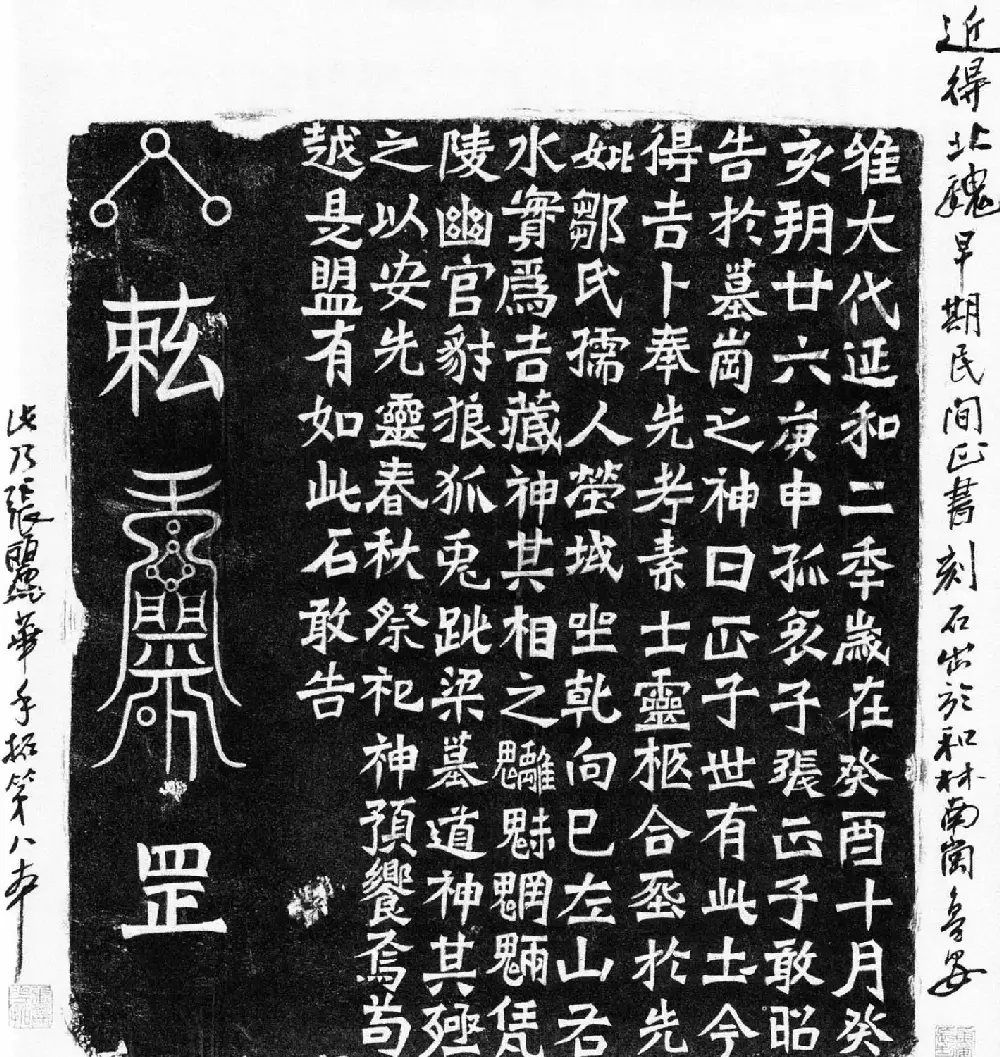 近得北魏早期民间正書刻石出於和林南崗
維大代延和二秊歲在癸酉十月癸
亥朔廿六庚申孤哀子張正子敢昭
告於墓崗之神曰正子世有此土今
得吉卜奉先考素士靈柩合窆於先
妣鄒氏孺人塋域坐乾向巳左山右
水實爲吉藏神其相之魑魅魍魎凭
陵幽宫豺狼狐兎跐梁墓道神其殛
之以安先靈春秋祭祀神預饗焉苟
越是盟有如此石敢告
敕
罡
此乃張華手拓第八本